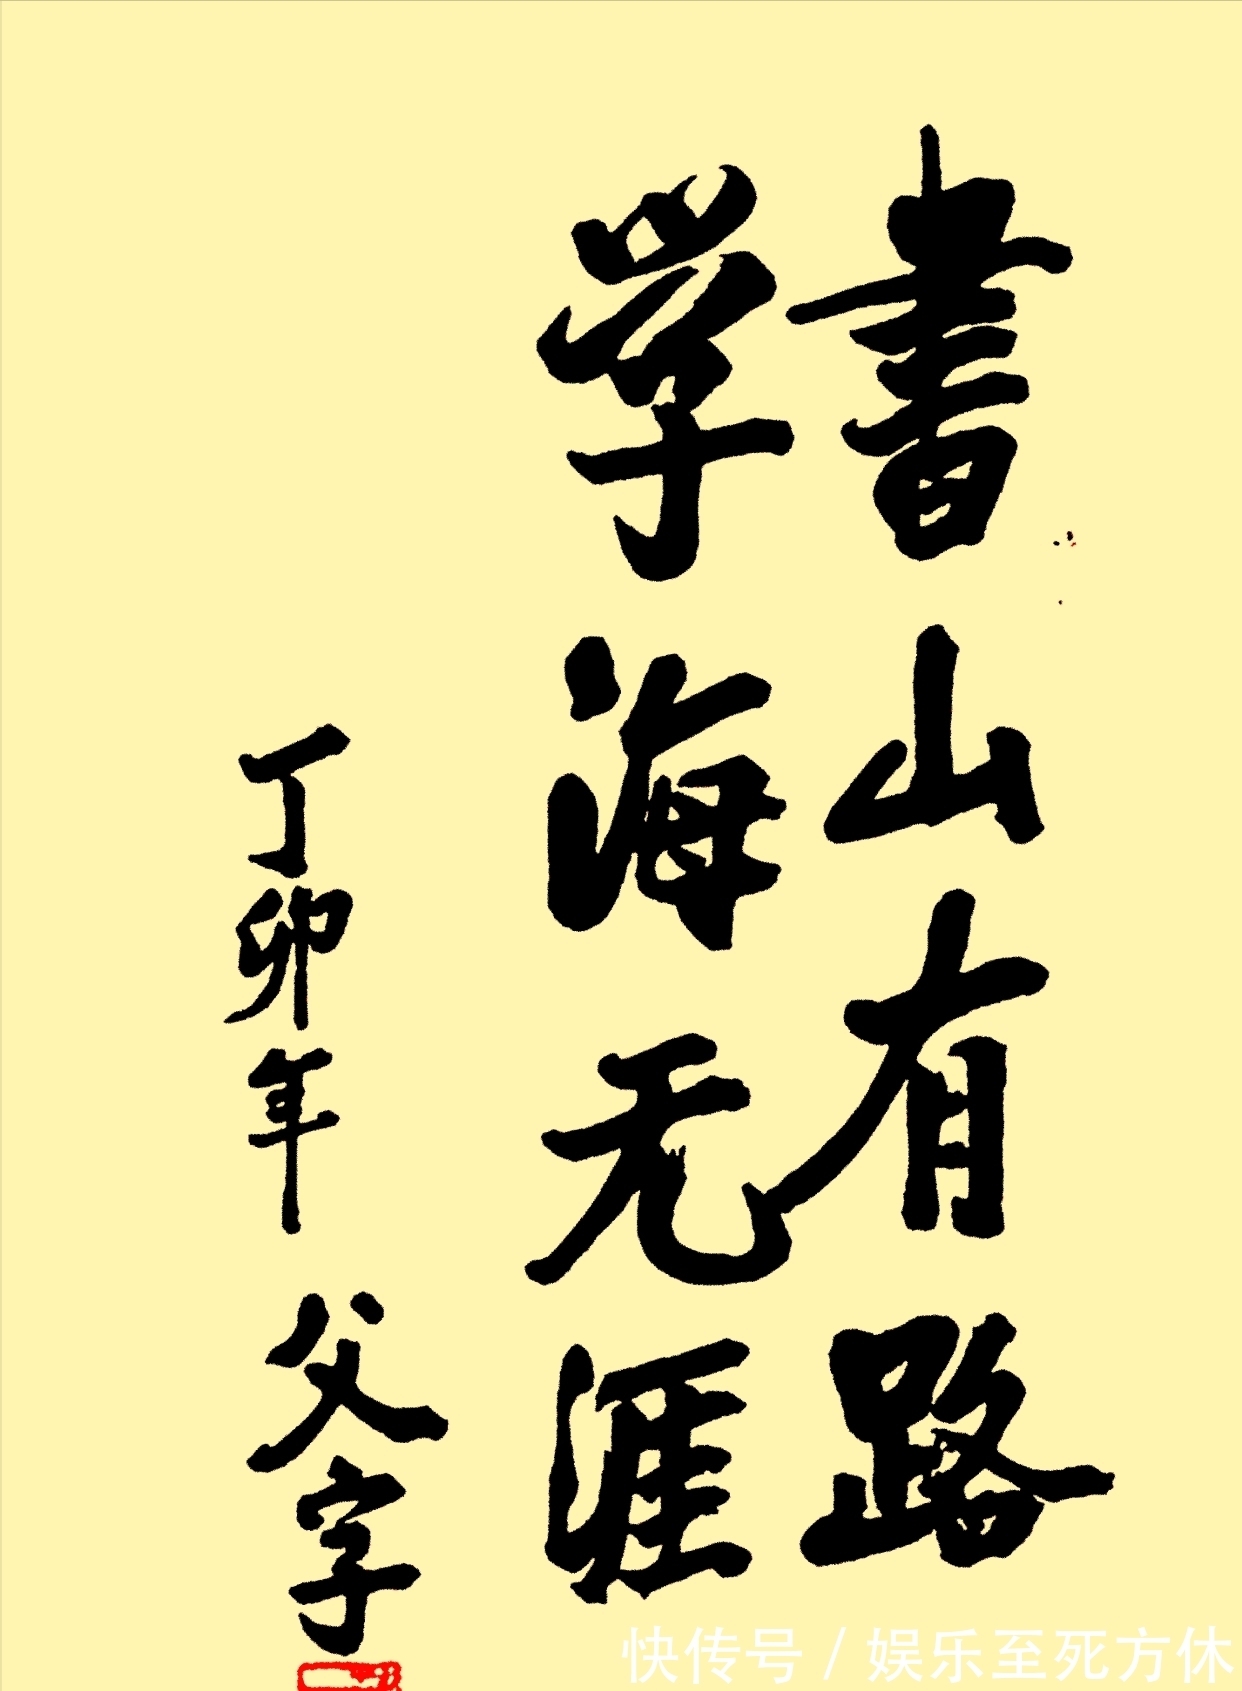 書山有路
学海无涯
丁卯年 父字
快传号 / 娱乐至死方休